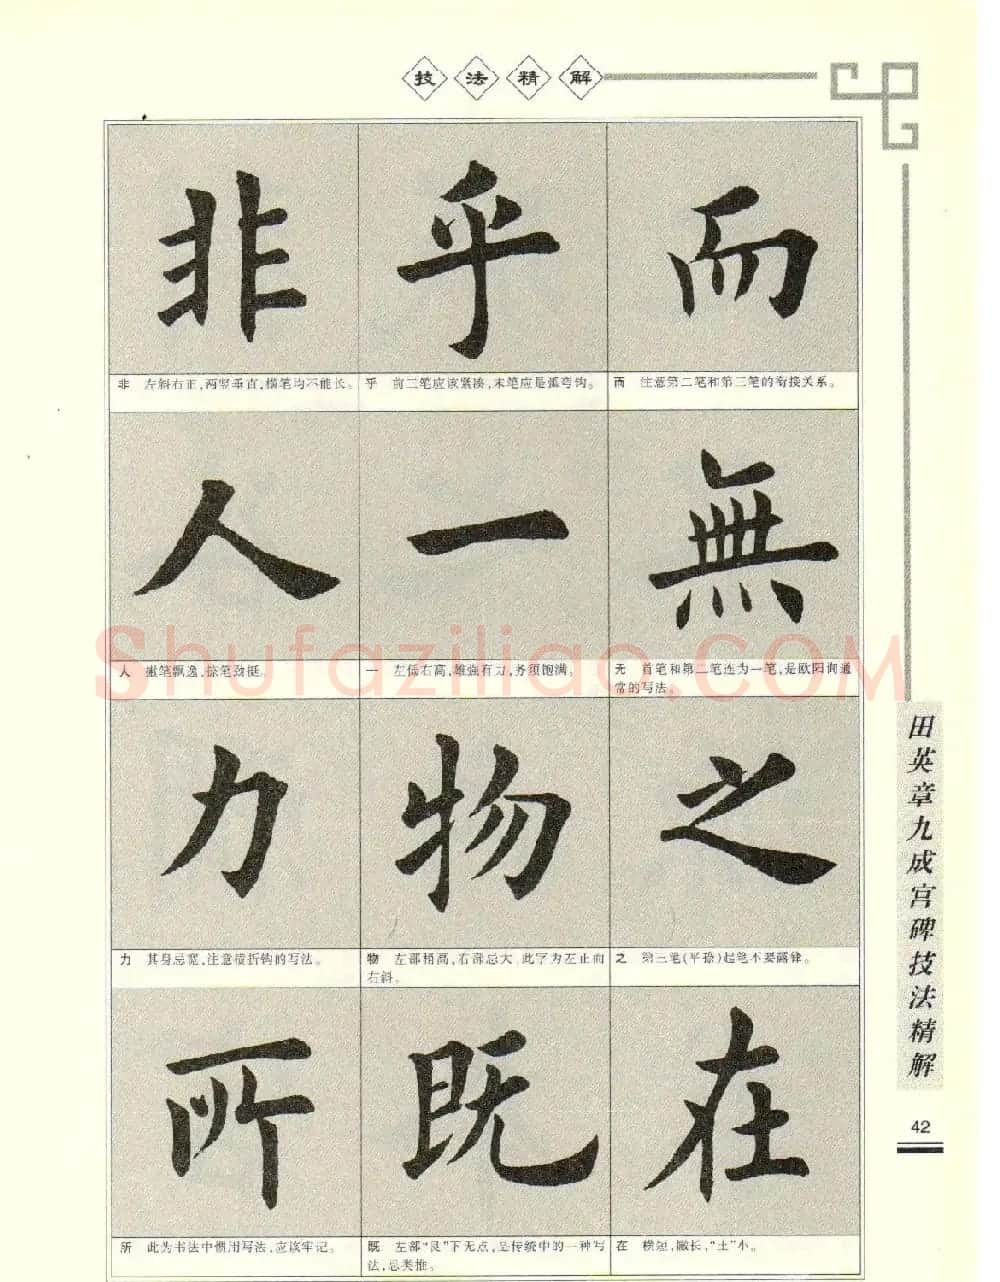 技法精解
非 乎 而
非 左斜右正,两竖垂直,横笔均不能长。
乎 前三笔应该紧凑,末笔应是弧弯钩。
而 注意第二笔和第三笔的衔接关系。
人 一 無
人 撇笔飘逸,捺笔劲挺。
一 左低右高,雄强有力,务须饱满。
无 首笔和第二笔连为一笔,是欧阳询通
常的写法。
力 物 之
力 其身忌宽,注意横折钩的写法。
物 左部稍高,右部忌大,此字为左正而
右斜。
之 第三笔(平捺)起笔不要露锋。
所 既 在
所 此为书法中惯用写法,应该牢记。
既 左部“良”下无点,是传统中的一种写
法,忌类推。
在 横短,撇长,“土”小。
Shufaziliao.COM
田英章九成宫碑技法精解
42